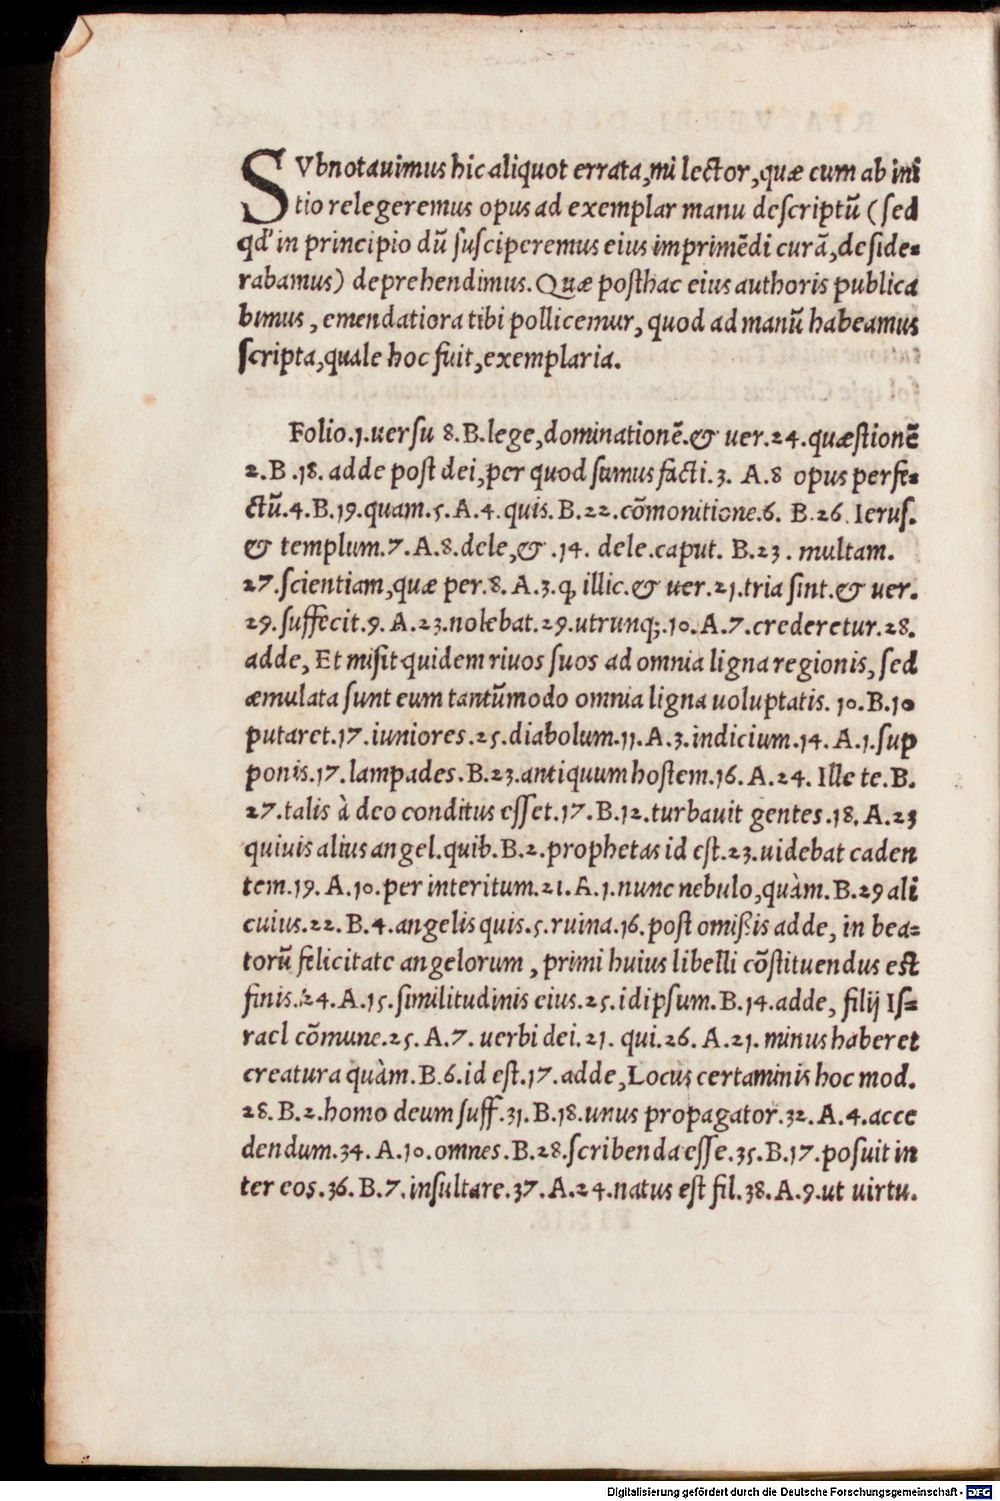 SVbnotauimus hic aliquot errata, mi lector, quæ cum ab ini
tio relegeremus opus ad exemplar manu descriptũ (sed
qd' in principio dũ susciperemus eius imprimẽdi curã, deside=
rabamus) deprehendimus. Quæ posthac eius authoris publica
bimus, emendatiora tibi pollicemur, quod ad manũ habeamus
scripta, quale hoc fuit, exemplaria.
Folio.1.uersu 8.B.lege, dominationẽ.& uer.24.quæstionẽ
2.B.18. adde post dei, per quod sumus facti.3. A.8 opus perfe=
ctũ.4.B.19.quam.5.A.4.quis.B.22.cõmonitione.6. B.26.Ierus.
& templum.7.A.8.dele, & .14. dele.caput. B.23. multam.
27.scientiam, quæ per.8.A.3.q, illic.& uer.21.tria sint.& uer.
29.suffecit.9.A.23.nolebat.29.utrunq;.10.A.7.crederetur.28.
adde, Et misit quidem riuos suos ad omnia ligna regionis, sed
æmulata sunt eum tantũmodo omnia ligna uoluptatis. 10.B.10
putaret.17.iuniores.25.diabolum.11.A.3.indicium.14.A.1.sup
ponis.17.lampades.B.23.antiquum hostem.16.A.24. Ille te.B.
27.talis à deo conditus esset.17.B.12.turbauit gentes.18.A.23
quiuis alius angel.quib.B.2.prophetas id est.23.uidebat caden
tem.19.A.10.per interitum.21.A.1.nunc nebulo, quàm.B.29 ali
cuius.22.B.4.angelis quis.5.ruina.16.post omißis adde, in bea=
torũ felicitate angelorum, primi huius libelli cõstituendus est
finis.24.A.15.similitudinis eius.25.idipsum.B.14.adde, filij Is=
rael cõmune.25.A.7. uerbi dei.21. qui.26.A.21. minus haberet
creatura quàm.B.6.id est.17.adde, Locus certaminis hoc mod.
28.B.2.homo deum suff.31.B.18.unus propagator.32.A.4.acce
dendum.34.A.10.omnes.B.28.scribenda esse.35.B.17.posuit in
ter eos.36.B.7.insultare.37.A.24.natus est fil.38.A.9.ut uirtu.
Digitalisierung gefördert durch die Deutsche Forschungsgemeinschaft - DFG